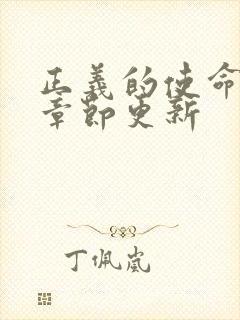 正義的使命
章節更新
丁佩嵐